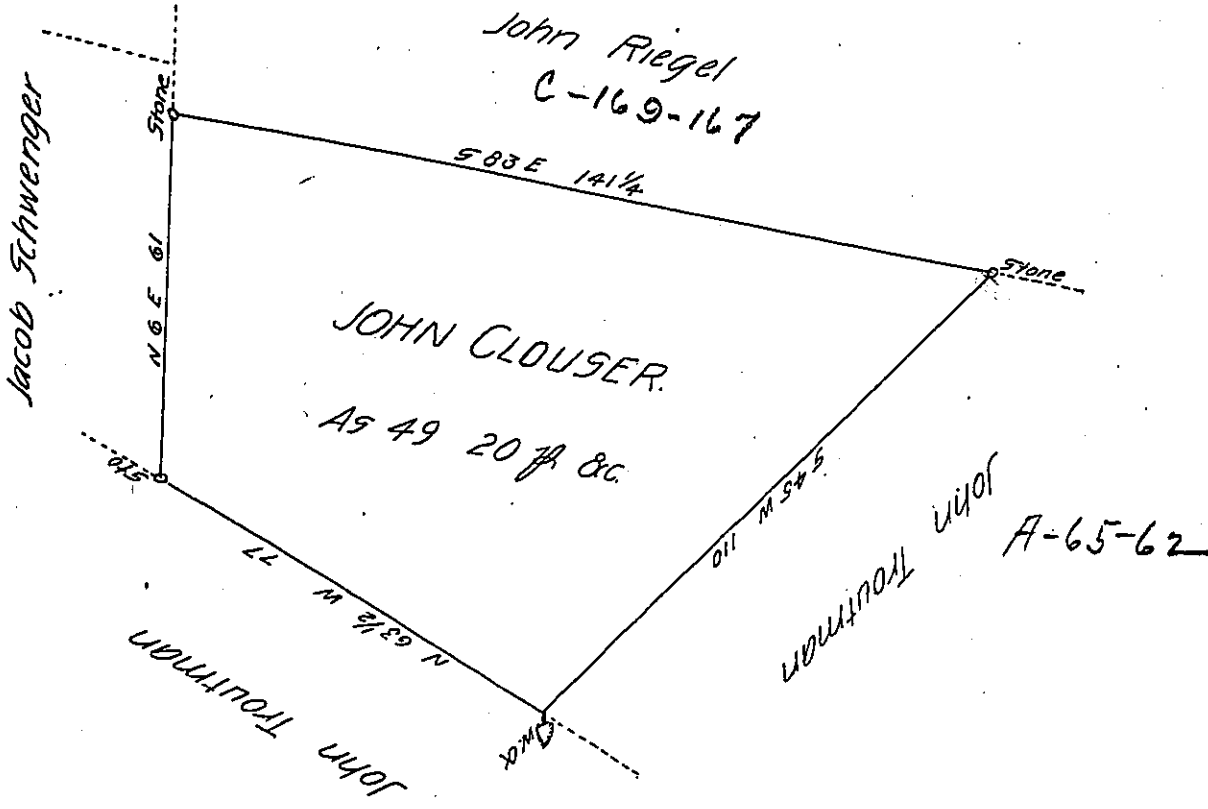 John Riegel
C-169-167
Jacob Schwenger
Stone
S 83 E 141¼
Stone
N 6 E 61
JOHN CLOUSER.
As 49 20 &c.
Sto
S 45 W 110
John Troutman
A-65-62
N 63½ W 77
W.O.
John Troutman